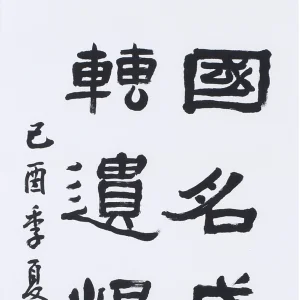 國名
轉遺
己酉季夏